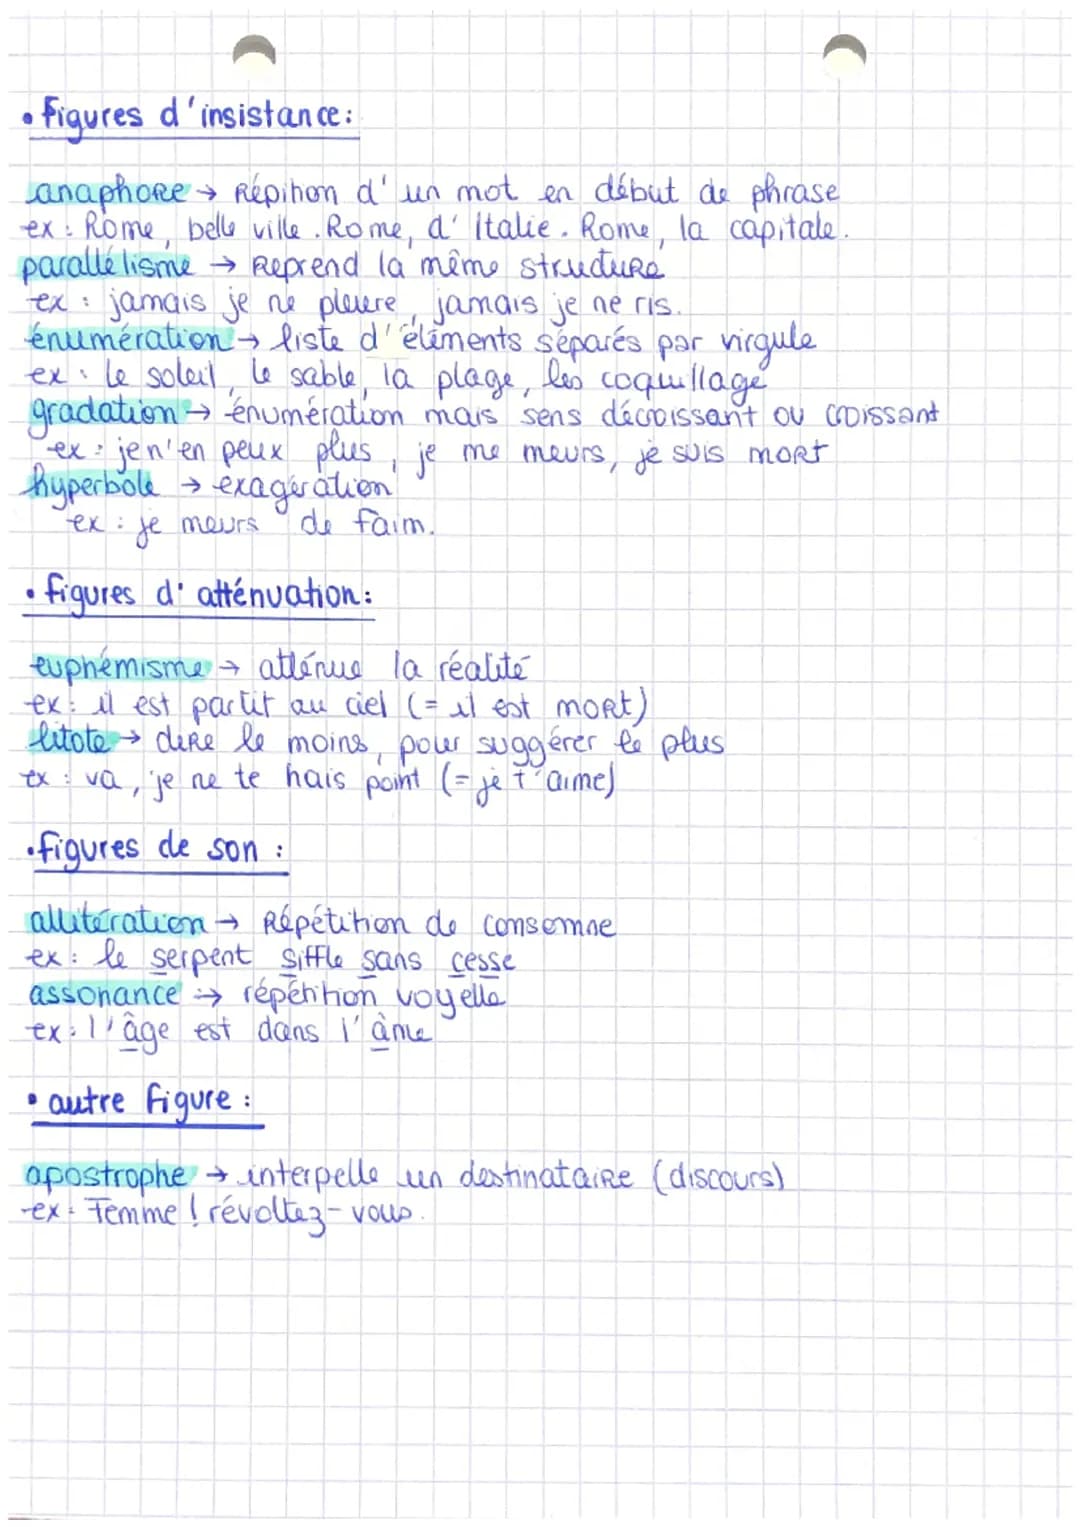 • figures d'insistance :
anaphore → Répition d'un mot en début de phrase
ex : Rome, belle ville. Rome, d'Italie. Rome, la capitale.
parallélisme → Reprend la même structure
ex : jamais je ne pleure, jamais je ne ris.
énumération → liste d'éléments séparés par virgule
ex : le soleil, le sable, la plage, les coquillage
gradation → énumération mais sens décroissant ou croissant
ex : je n'en peux plus, je me meurs, je suis mort
hyperbole → exagération
ex : je meurs de faim.
• figures d'atténuation :
euphémisme → atténue la réalité
ex : il est partit au ciel (= il est mort)
litote → dire le moins, pour suggérer le plus
ex : va, je ne te hais point (= je t'aime)
• figures de son :
allitération → Répétition de consonne
ex : le serpent siffle sans cesse
assonance → répétition voyelle
ex : l'âge est dans l'âme
• autre figure :
apostrophe → interpelle un destinataire (discours)
ex : Femme ! révoltez-vous.